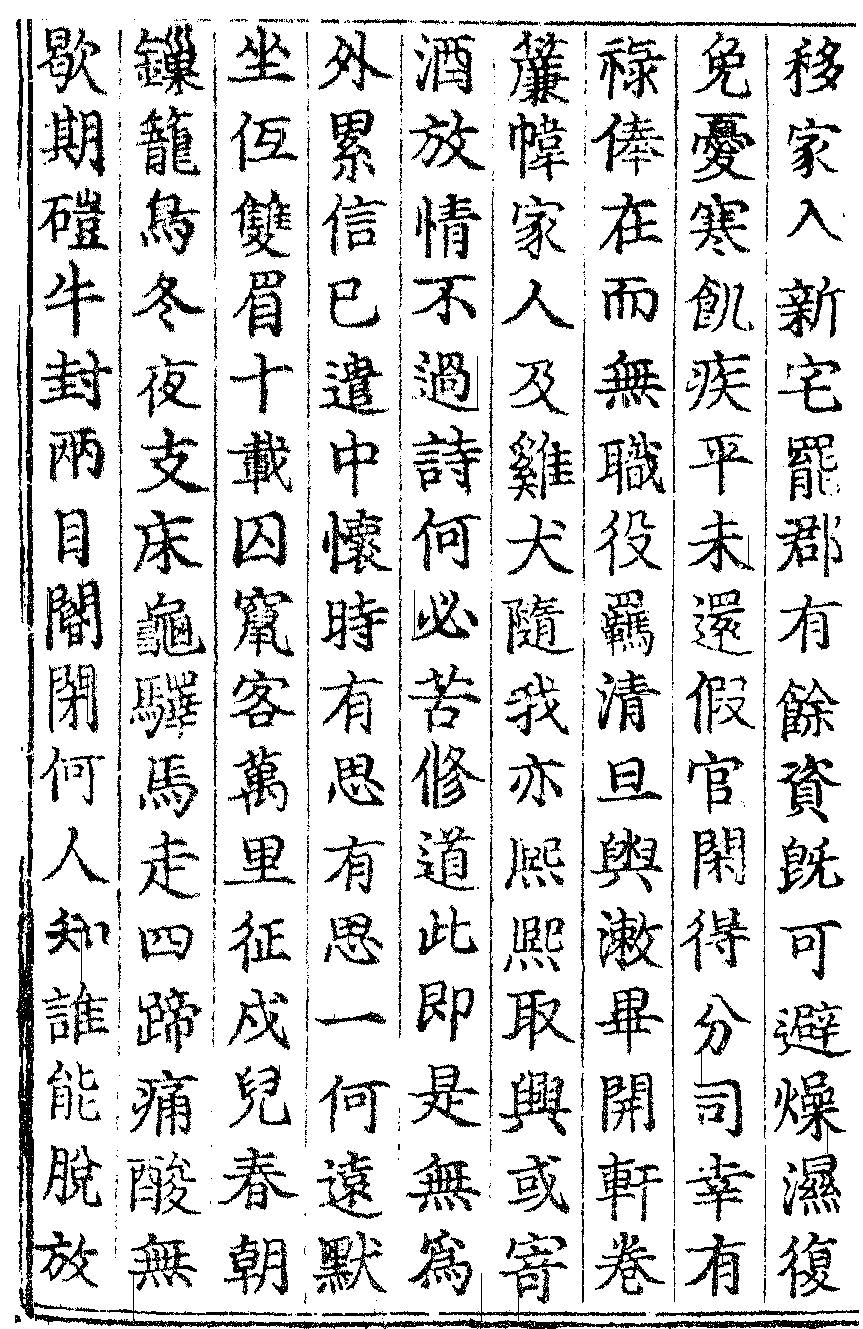 移家入新宅罷郡有餘資既可避燥濕復
免憂寒飢疾平未還假官閑得分司幸有
祿俸在而無職役羈清旦盥漱畢開軒卷
簾幃家人及雞犬隨我亦熈熈取興或寄
酒放情不過詩何必苦修道此即是無爲
外累信已遣中懷時有思有思一何遠默
坐仾雙眉十載囚竄客萬里征戍兒春朝
鏁籠鳥冬夜支床龜驛馬走四蹄痛酸無
歇期磑牛封兩目闇閉何人知誰能脫放